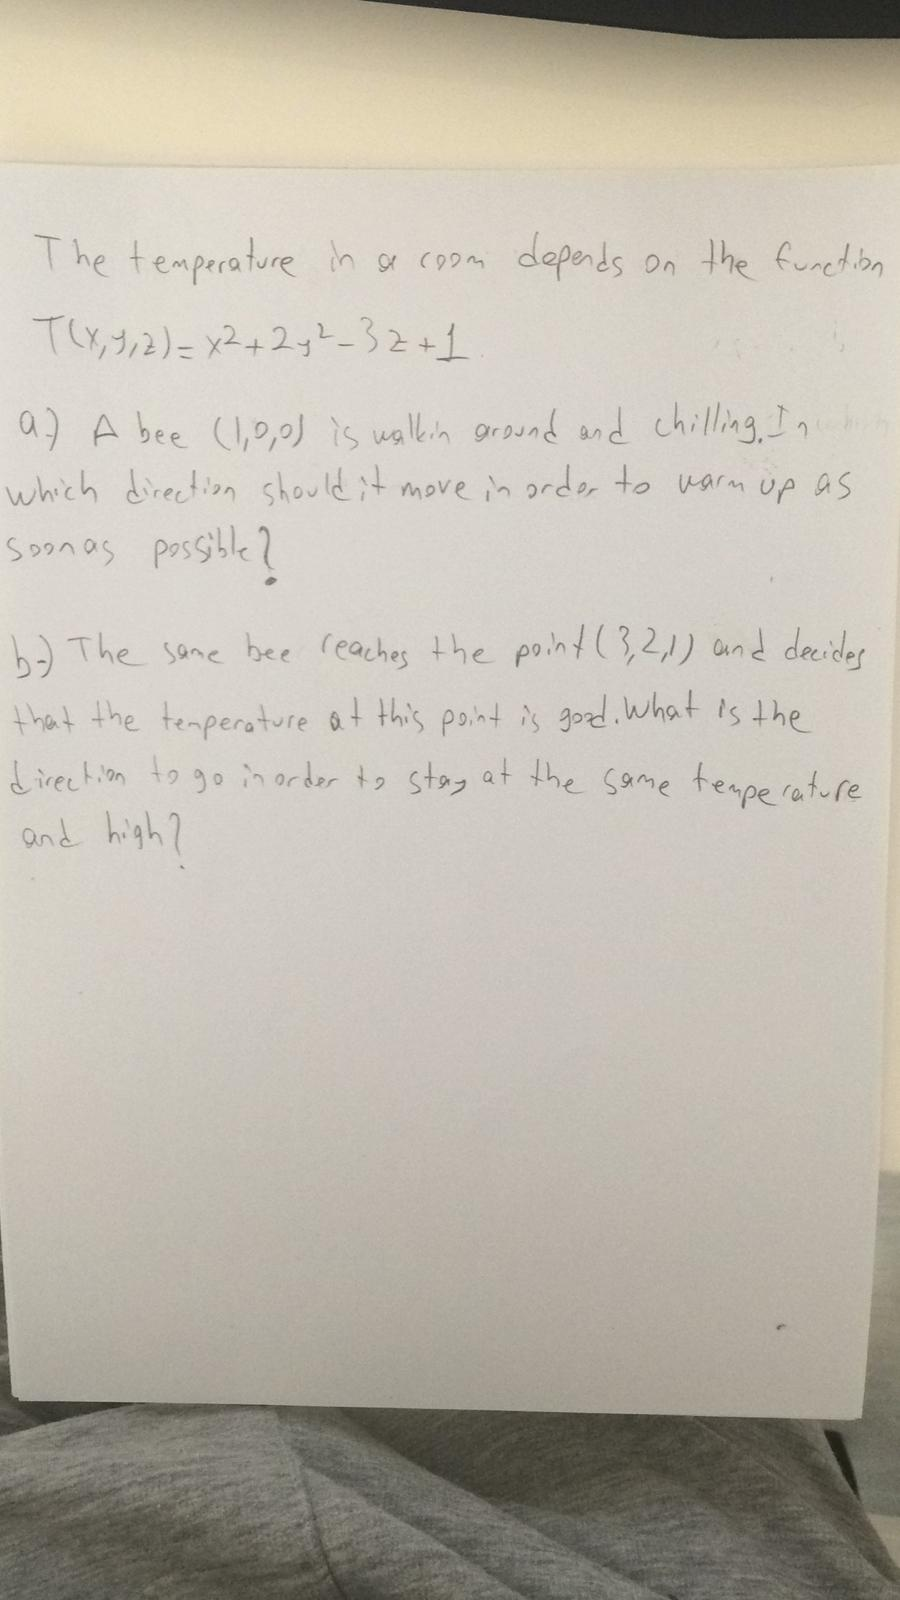 The temperature in a room depends on the function
T(x,y,z)= x²+2y²-3z+1
a-) A bee (1,0,0) is walkin around and chilling. In
which direction should it move in order to warm up as
soon as possible?
b-) The same bee reaches the point (3,2,1) and decides
that the temperature at this point is good. What is the
direction to go in order to stay at the same temperature
and high?